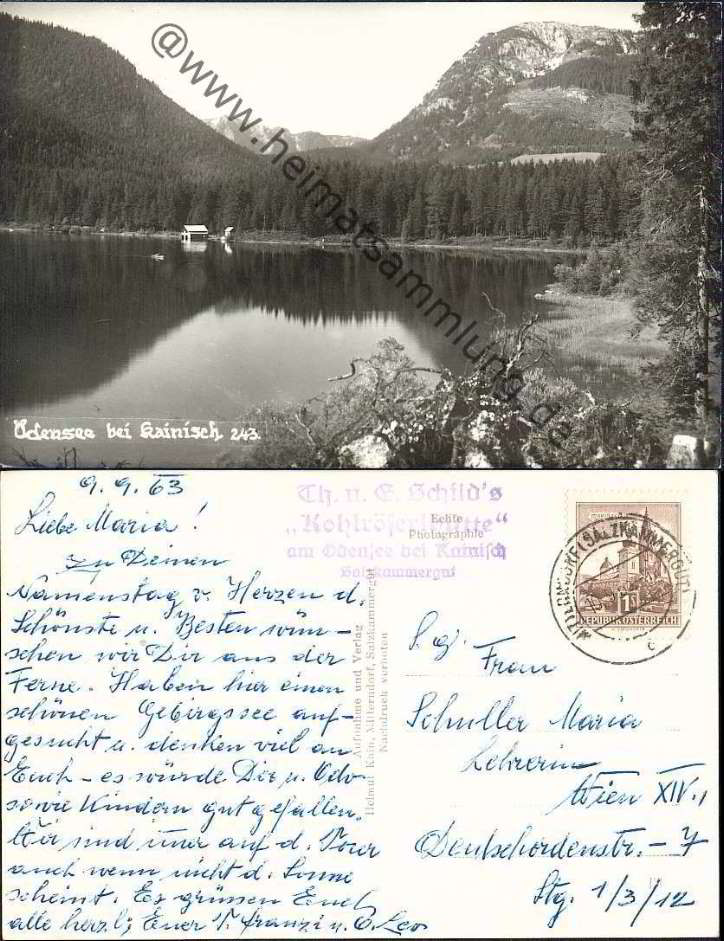 @www.heimatsammlung.de
Ödensee bei Kainisch 243.
9.9.63
Liebe Maria!
Zu Deinen
Namenstag v. Herzen d.
Schönste u. Besten wün-
schen wir Dir aus der
Ferne. Haben hier einen
schönen Gebirgssee auf-
gesucht u. denken viel an
Euch - es würde Dir u. Odo
sowie Kindern gut gefallen.
Wir sind imer auf d. Tour
auch wenn nicht d. Sonne
scheint. Es grüssen Euch
alle herzl; Euer T. Franzi u. O. Leo
Th. u. E. Schild's
"Kohlröserlhütte"
am Ödensee bei Kainisch
Salzkammergut
Echte
Photographie
Aufnahme und Verlag
Helmut Kain, Mitterndorf, Salzkammergut
Nachdruck verboten
MITTERNDORF (SALZKAMMERGUT)
REPUBLIK ÖSTERREICH
S. g.
Frau
Schuller Maria
Lehrerin
Wien XIV.,
Deutschordenstr. - 7
Stg. 1/3/12